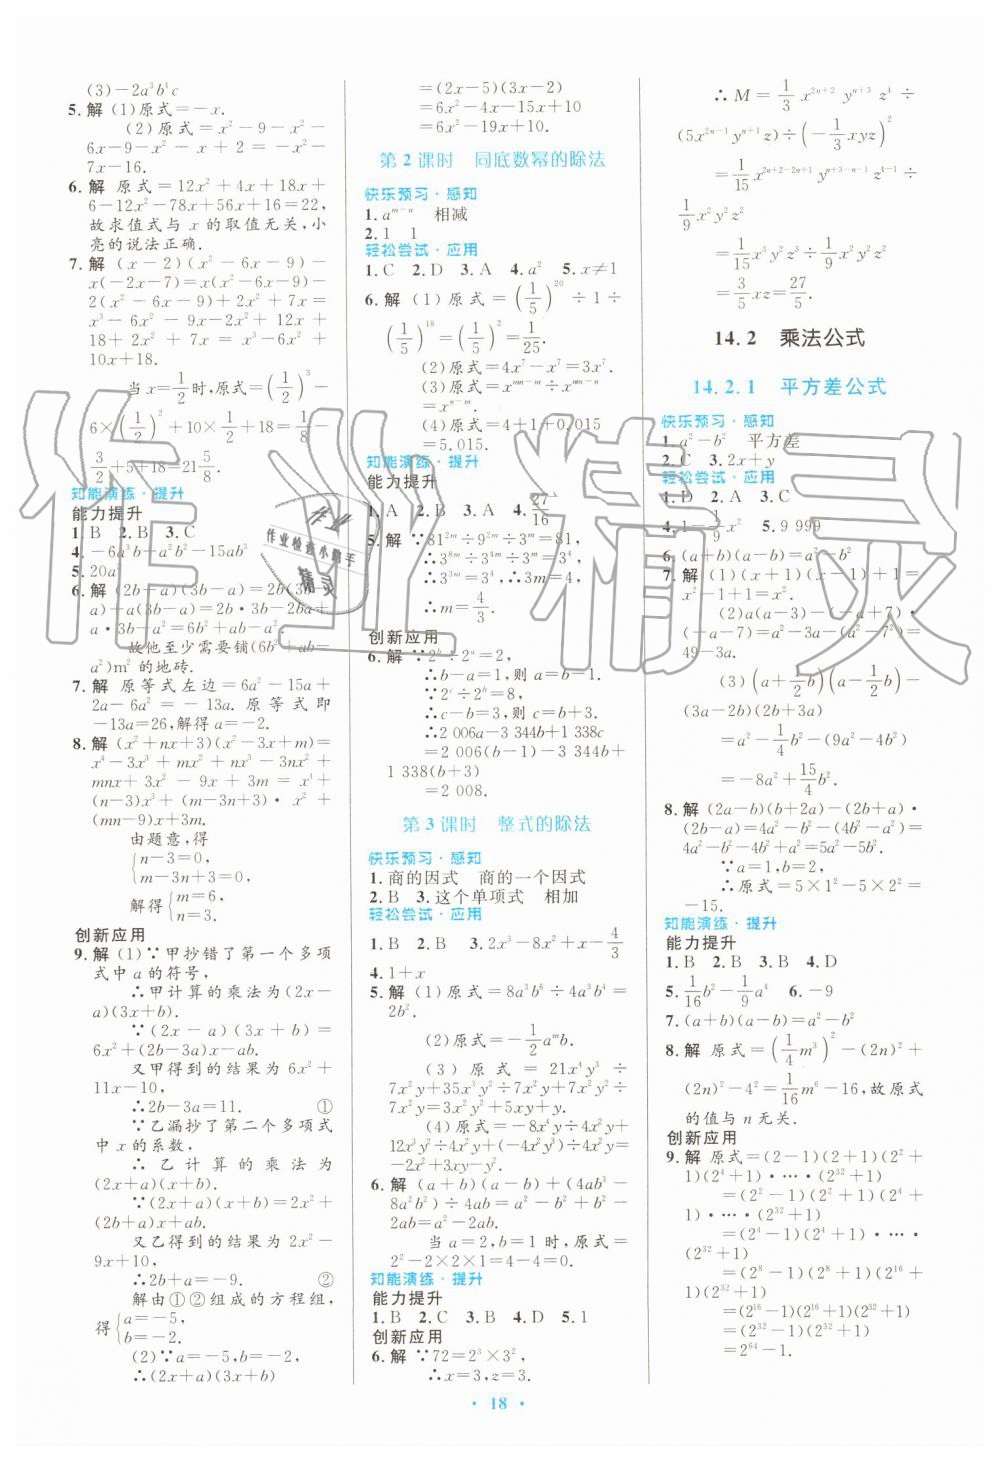 (3)-2a³b⁴c
5. 解 (1)原式=-x.
(2)原式=x²-9-x²-
6x-9-x²-6x-9=-x²-
7x-16.
6. 解 原式=12x²+4x+18x+
6-12x²-78x+56x+16=22,
故求值式与 x 的取值无关,小
亮的说法正确.
7. 解 (x-2)(x²-6x-9)-
x(-2x-7)=x(x²-6x-9)-
2(x²-6x-9)+2x²+7x=
x³-6x²-9x-2x²+12x+
18+2x²+7x=x³-6x²+
10x+18.
6×(1/2)²+10×1/2+18=
3/2+5+18=21 5/8.
知能演练·提升
能力提升
1. B 2. B 3. C
故他至少需要铺(6b²+
a²)m² 的地砖.
7. 解 原等式左边=6a²-15a+
2a-6a²=-13a. 原等式即
-13a=26,解得 a=-2.
8. 解 (x²+nx+3)(x²-3x+m)=
x⁴-3x³+mx²+nx³-3nx²+
mnx+3x²-9x+3m=x⁴+
(n-3)x³+(m-3n+3)x²+
(mn-9)x+3m.
由题意,得
{n-3=0,
m-3n+3=0,
解得{m=6,
n=3.
创新应用
9. 解 (1)∵甲抄错了第一个多项
式中 a 的符号,
∴甲计算的乘法为(2x-
a)(3x+b).
∵(2x-a)(3x+b)=
6x²+(2b-3a)x-ab.
又甲得到的结果为6x²+
11x-10,
∴2b-3a=11. ①
∵乙漏抄了第二个多项式
中 x 的系数,
∴乙计算的乘法为
(2x+a)(x+b).
∵(2x+a)(x+b)=2x²+
(a+2b)x+ab.
又乙得到的结果为 2x²-
9x+10,
∴2b+a=-9. ②
解由①②组成的方程组,
得{a=-5,
b=-2.
(2)∵a=-5,b=-2,
∴(2x+a)(3x+b)
=(2x-5)(3x-2)
=6x²-4x-15x+10
=6x²-19x+10.
第 2 课时 同底数幂的除法
快乐预习·感知
1. aᵐ⁻ⁿ 相减
2. 1 1
轻松尝试·应用
1. C 2. D 3. A 4. a² 5. x≠1
6. 解 (1)原式=(1/5)²⁰÷1÷
(1/5)¹⁸=(1/5)²=1/25.
(2)原式=4x⁷-x⁷=3x⁷.
(3)原式=xᵐⁿ⁻ᵐ÷xᵐⁿ⁻ⁿ=
xⁿ⁻ᵐ.
(4)原式=4+1+0.015
=5.015.
知能演练·提升
能力提升
1. A 2. B 3. A 4. 27/16
5. 解 ∵81²ᵐ÷9²ᵐ÷3ᵐ=81,
∴3⁸ᵐ÷3⁴ᵐ÷3ᵐ=3⁴,
∴3³ᵐ=3⁴,∴3m=4,
∴m=4/3.
创新应用
6. 解 ∵2ᵇ÷2ᵃ=2,
∴b-a=1,则 a=b-1.
∵2ᶜ÷2ᵇ=8,
∴c-b=3,则 c=b+3.
∴2 006a-3 344b+1 338c
=2 006(b-1)-3 344b+
1 338(b+3)
=2 008.
第 3 课时 整式的除法
快乐预习·感知
1. 商的因式 商的一个因式
2. B 3. 这个单项式 相加
轻松尝试·应用
1. B 2. B 3. 2x³-8x²+x-4/3
4. 1+x
5. 解 (1)原式=8a³b⁶÷4a³b⁴=
2b².
(2)原式=-1/2aᵐb.
(3)原式=21x⁴y³÷
7x²y+35x³y²÷7x²y+7x²y²÷
7x²y=3x²y²+5xy+y.
(4)原式=-8x⁴y÷4x²y+
12x³y²÷4x²y-4x²y÷4x²y=
-2x²+3xy-1.
6. 解 (a+b)(a-b)+(4ab³-
8a²b²)÷4ab=a²-b²+b²-
2ab=a²-2ab.
当 a=2,b=1 时,原式=
2²-2×2×1=0.
知能演练·提升
能力提升
1. B 2. C 3. B 4. D 5. 1
创新应用
6. 解 ∵72=2³×3²,
∴x=3,z=3.
∴M=1/3x²ⁿ⁺²yⁿ⁺³z⁴÷
(5x²ⁿ⁻¹yⁿ⁺¹z)÷(-1/3xyz)²=
1/15x²ⁿ⁺²⁻²ⁿ⁺¹yⁿ⁺³⁻ⁿ⁻¹z³÷
1/9x²y²z²
=1/15x³y²z³÷1/9x²y²z²
=3/5xz=27/5.
14.2 乘法公式
14.2.1 平方差公式
快乐预习·感知
1. a²-b² 平方差
2. C 3. 2x+y
轻松尝试·应用
1. D 2. A 3. C
4. 1-1/9x² 5. 9 999
6. (a+b)(a-b)=a²-b²
7. 解 (1)(x+1)(x-1)+1=
x²-1+1=x².
(2)a(a-3)-(-a+7)·
49-3a.
(3)(a+1/2b)(a-1/2b)-
(3a-2b)(2b+3a)
=a²-1/4b²-(9a²-4b²)
=-8a²+15/4b².
8. 解 (2a-b)(b+2a)-(2b+a)·
(2b-a)=4a²-b²-(4b²-a²)=
4a²-b²-4b²+a²=5a²-5b².
∵a=1,b=2,
∴原式=5×1²-5×2²=
-15.
知能演练·提升
能力提升
1. B 2. B 3. B 4. D
5. 1/16b²-1/9a⁴ 6. -9
7. (a+b)(a-b)=a²-b²
8. 解 原式=(1/4m³)²-(2n)²+
(2n)²-4²=1/16m⁶-16,故原式
的值与 n 无关.
创新应用
9. 解 原式=(2-1)(2+1)(2²+
1)(2⁴+1)·…·(2³²+1)
=(2²-1)(2²+1)(2⁴+
1)·…·(2³²+1)
=(2⁴-1)(2⁴+1)(2⁸+
1)(2¹⁶+1)(2³²+1)
=(2⁸-1)(2⁸+1)(2¹⁶+
1)(2³²+1)
=(2¹⁶-1)(2¹⁶+1)(2³²+1)
=(2³²-1)(2³²+1)
=2⁶⁴-1.
· 18 ·
作业精灵
作业
作业检查小帮手
精灵